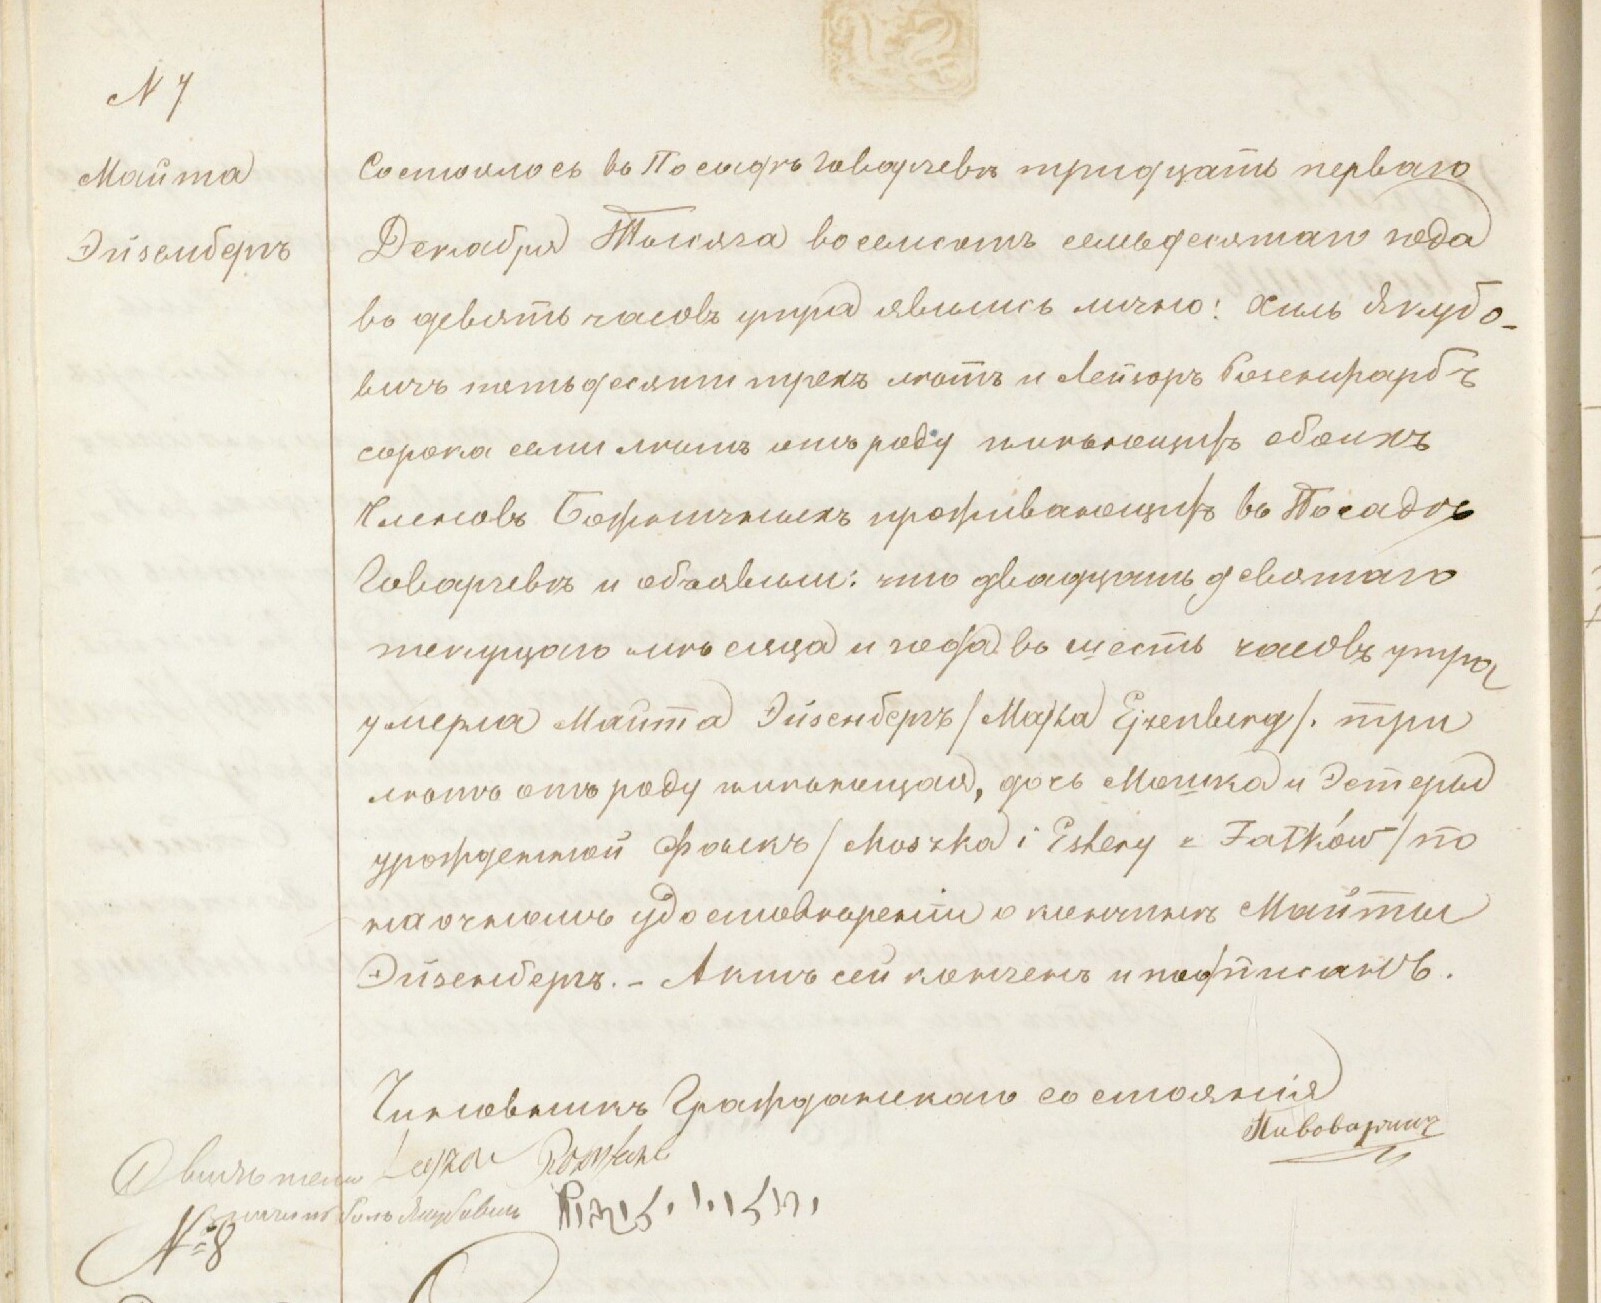 N 7
Майта
Эйзенбергъ
Состоялось въ Посадѣ Говарчевѣ тридцать перваго
Декабря Тысяча восемсотъ семьдесятаго года
въ девять часовъ утра явились лично: Хиль Якубо-
вичъ петьдесяти трехъ лѣтъ и Лейзоръ Розенфарбъ
сорока семи лѣтъ отъ роду имѣющихъ обоихъ
Членовъ Божничныхъ проживающихъ въ Посадѣ
Говарчевѣ и объявили: что двадцать девятаго
текущаго мѣсяца и года въ шесть часовъ утра
умерла Майта Эйзенбергъ /Majta Ejzenberg/. три
лѣтъ отъ роду имѣющая, дочь Мошка и Эстеры
урожденной Фалкъ /Moszka i Estery z Fałków/ по
наочномъ удостовѣреніи о кончинѣ Майты
Эйзенбергъ. - Актъ сей конченъ и подписанъ.
Чиновникъ Гражданскаго состоянія
Пивоварчикъ
Свидѣтели Lejzor
Якубовичъ
№ 8